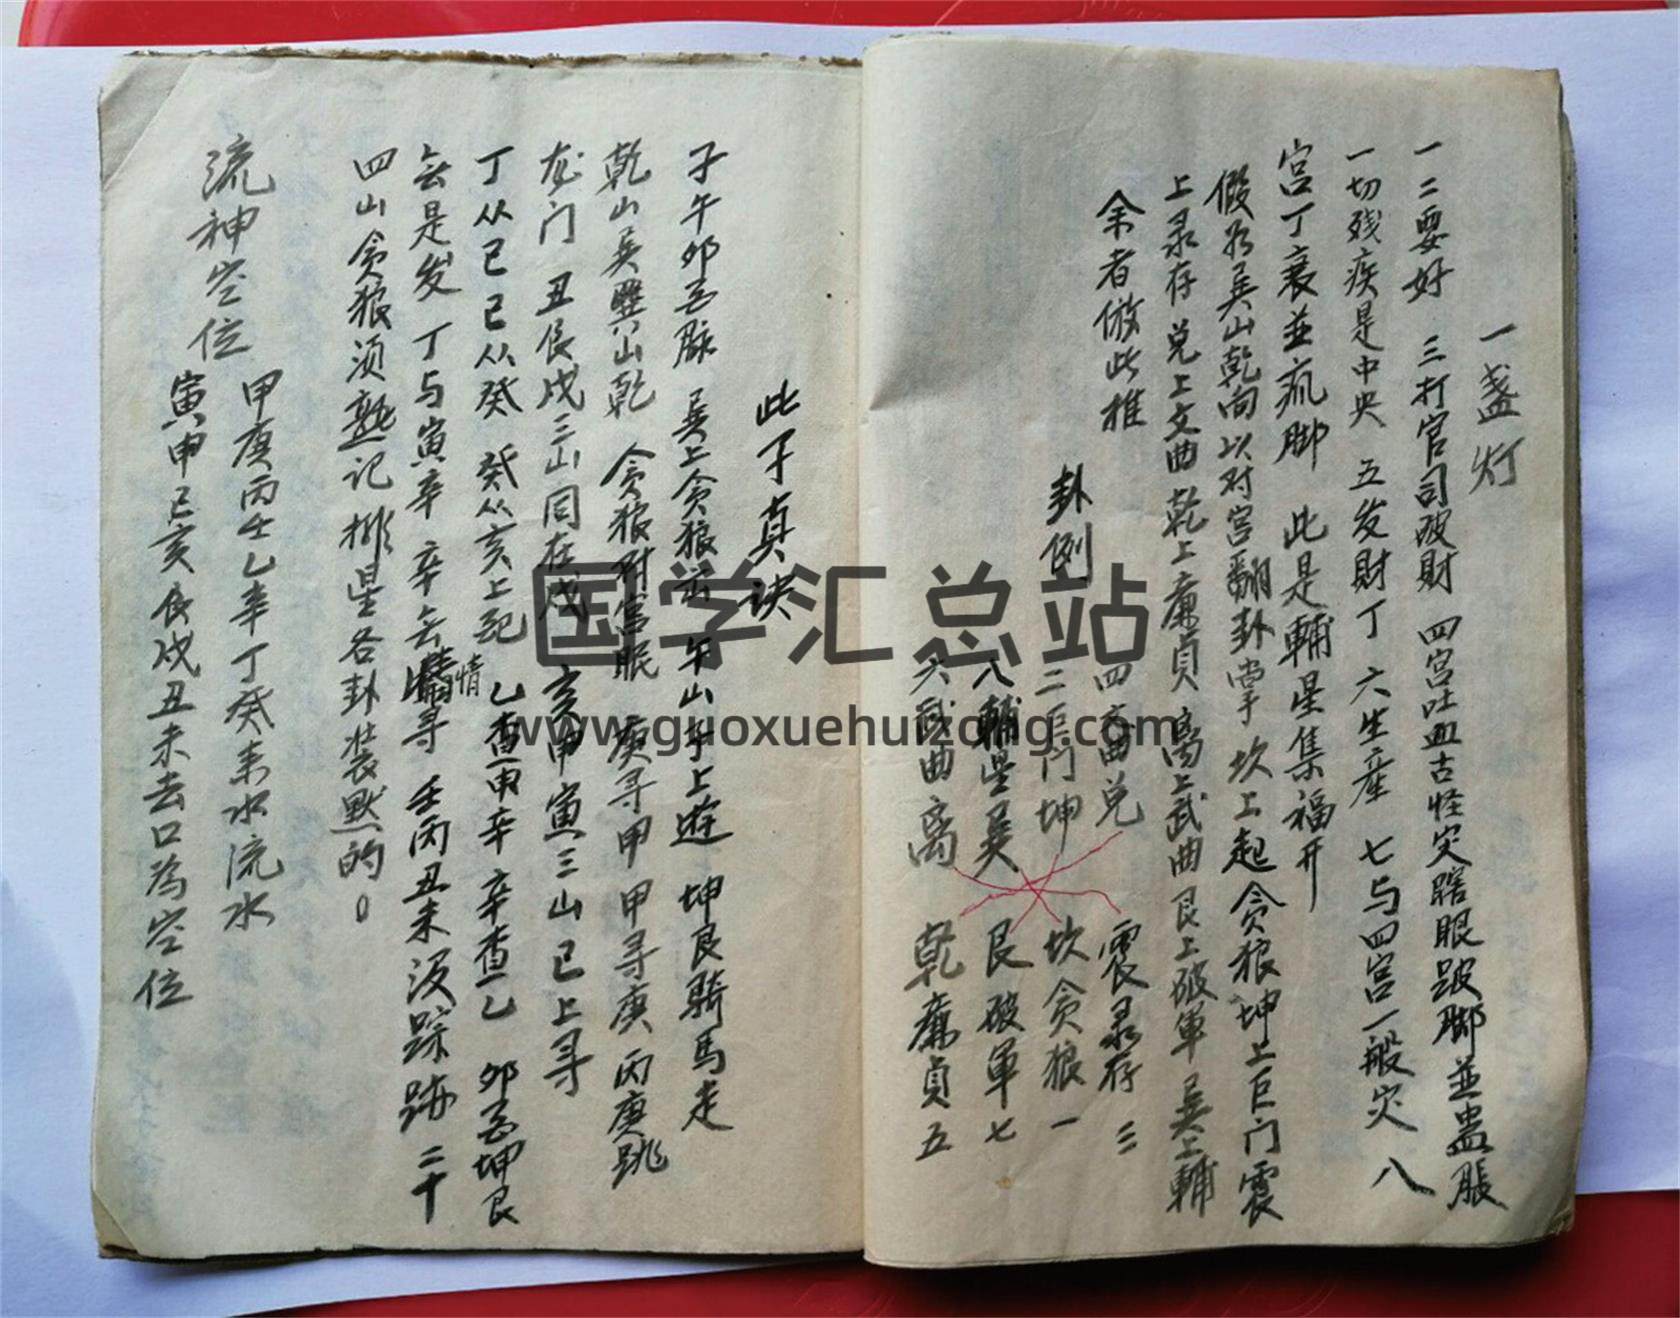 一盏灯
一二要好 三打官司破財 四宫吐血古怪灾瞎眼跛脚並蛊脹
一切残疾是中央 五发財丁 六生産 七与四宫一般灾 八
宫丁衰並疯脚 此是輔星集福开
假如巽山乾向以对宫翻卦掌 坎上起贪狼坤上巨门震
上录存 兑上文曲 乾上廉貞 离上武曲艮上破軍 巽上輔
余者倣此推
卦例
四文曲兑 震录存三
二巨门坤 坎贪狼一
八輔星巽 艮破軍七
六武曲离 乾廉貞五
此子真诀
子午卯 脉 巽上贪狼 午山 上遊 坤艮騎馬走
乾山巽 巽山乾 贪狼对宫眠 庚寻甲 甲寻庚 丙庚跳
龙门 丑艮戌三山同在戌 亥甲寅三山已上寻
丁从已 已从癸 癸从亥上起 乙查甲辛 辛查乙 卯 坤艮
去是发 丁与寅辛 辛去 情寻 壬丙丑未没踪跡 二十
四山贪狼须熟记 排星各卦装默的。
流神空位
甲庚丙壬乙辛丁癸来水流水
寅申已亥辰戌丑未去口為空位
国学汇总站
www.guoxuehuizong.com